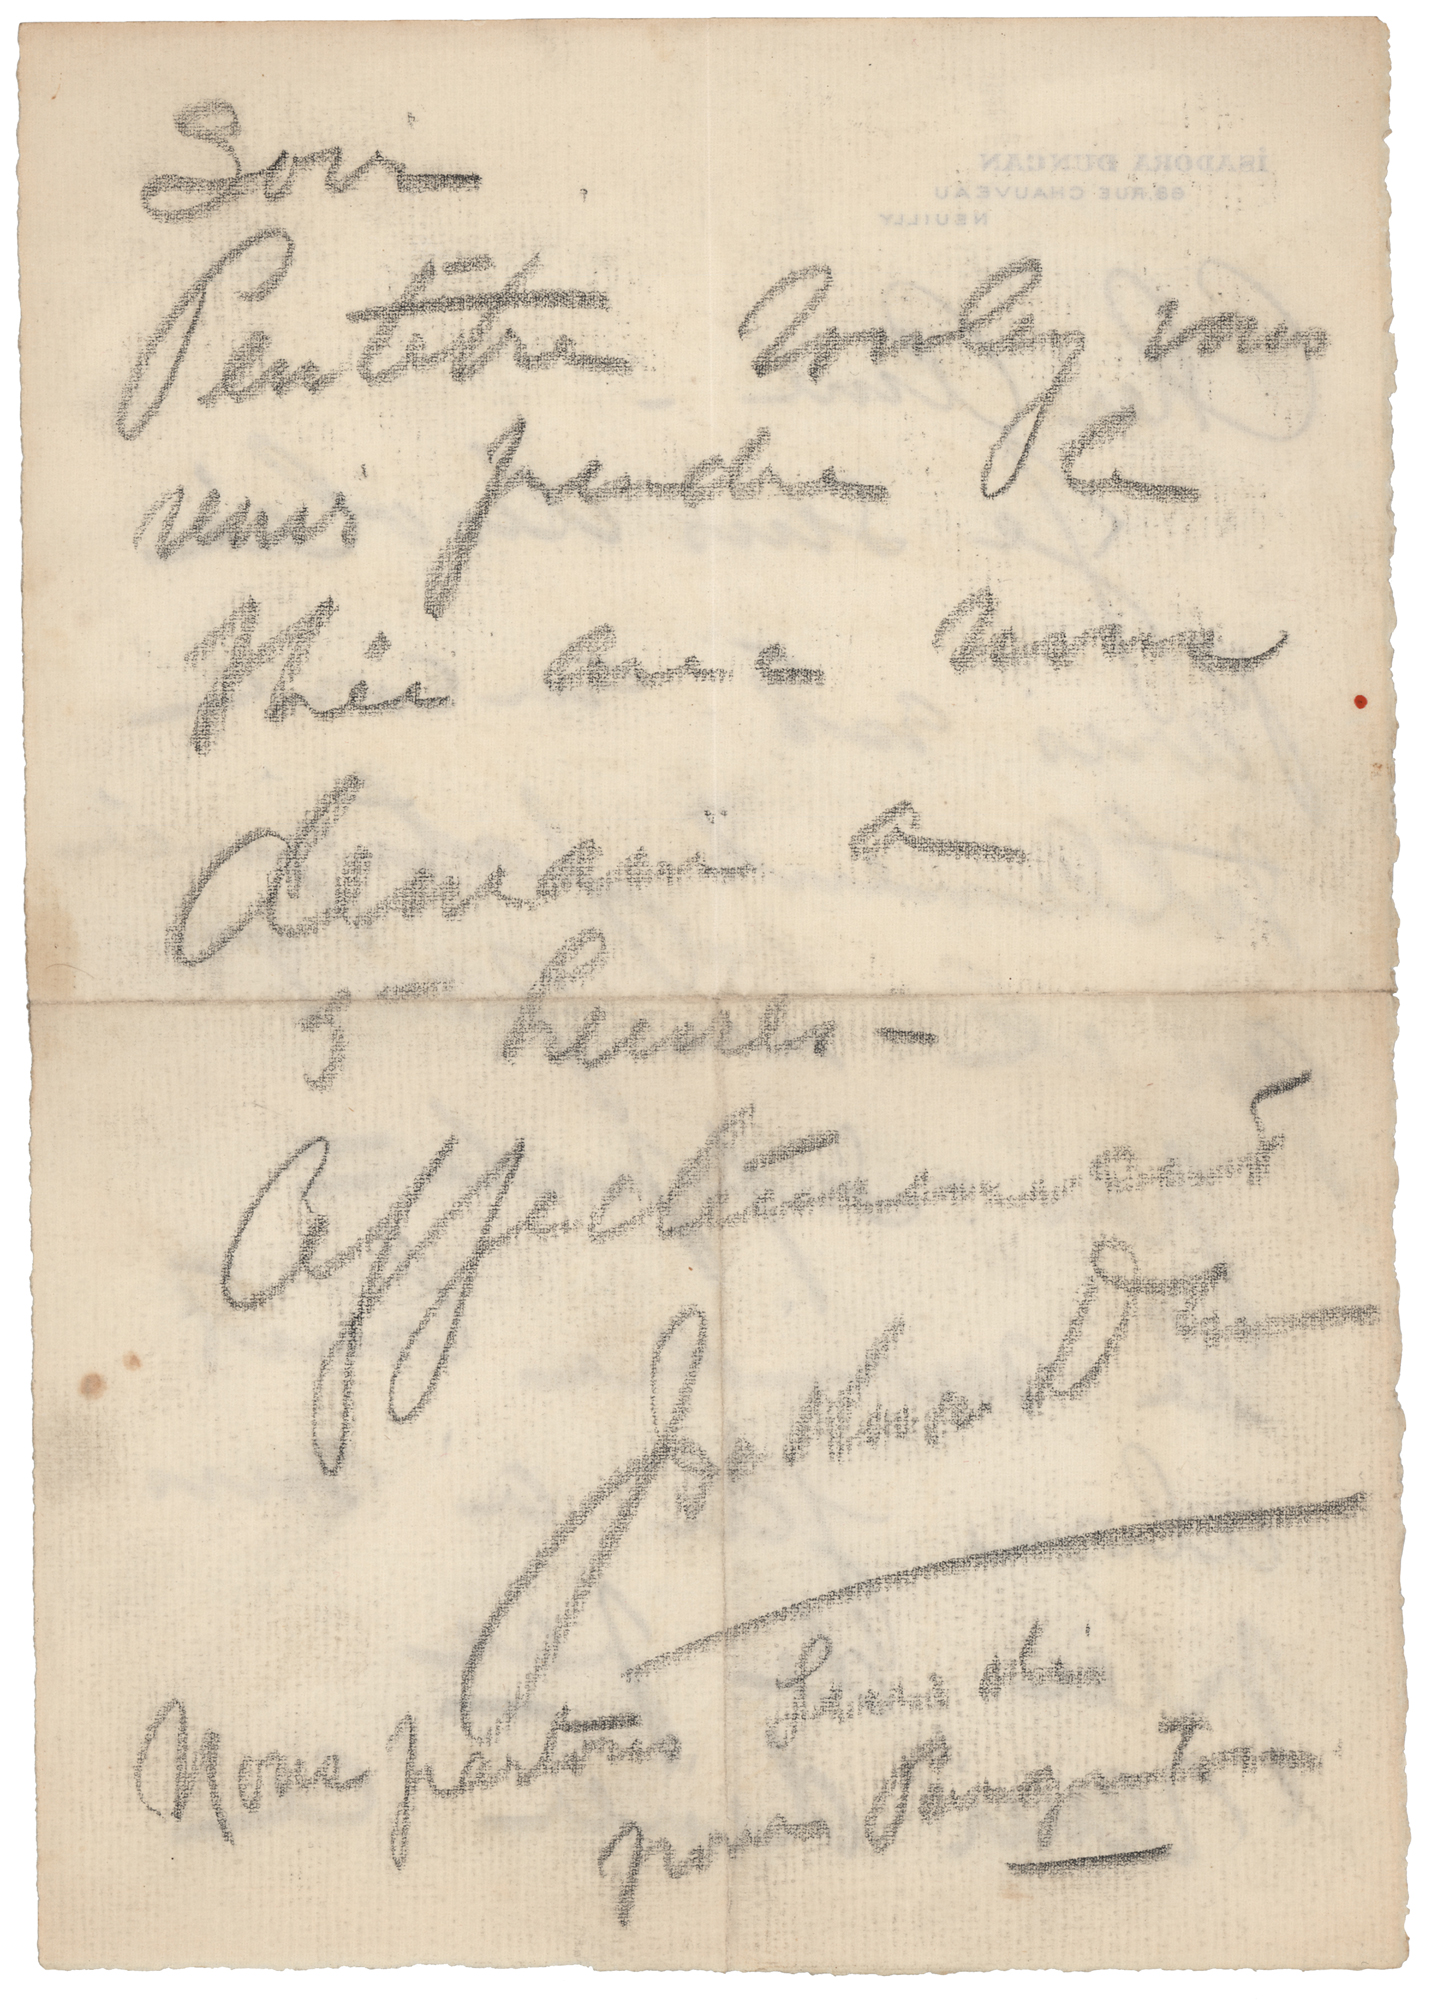 Soir —
Peutêtre Voulez vous
venir prendre le
thé avec nous
demain a
5 heures —
Affectueusement
Isadora D
Nous partons Lundi
pour
ISADORA DUNCAN
68. RUE CHAUVEAU
NEUILLY